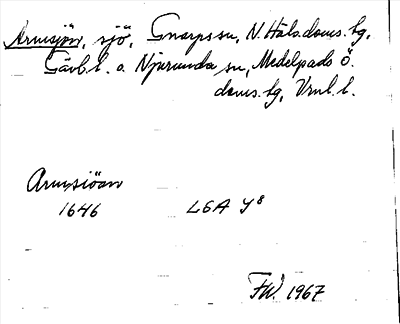 Armsjön, sjö, Gnarps sn, N. Häls. doms. tg,
Gävl. l. o. Njurunda sn, Medelpads Ö.
doms. tg, Vrnl. l.
Armsiöan
1646 LSA Y8
FW. 1967